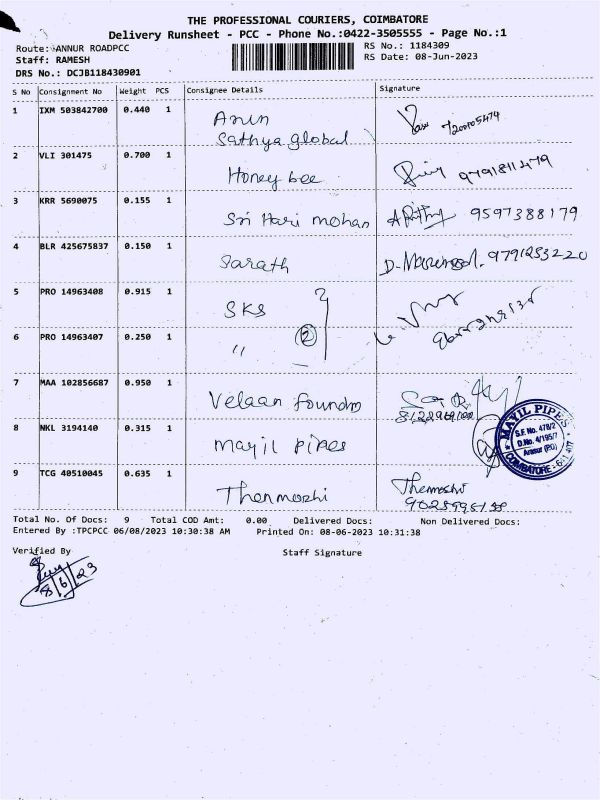 THE PROFESSIONAL COURIERS, COIMBATORE
Delivery Runsheet - PCC - Phone No.:0422-3505555 - Page No.:1
Route: ANNUR ROADPCC RS No.: 1184309
Staff: RAMESH RS Date: 08-Jun-2023
DRS No.: DCJB118430901
S No Consignment No Weight PCS Consignee Details Signature
1 IXM 503842700 0.440 1 Arun
Sathya global
2 VLI 301475 0.700 1 Honey bee 9791811479
3 KRR 5690075 0.155 1 Sri Hari mohan 9597388179
4 BLR 425675837 0.150 1 Sarath 9791253220
5 PRO 14963408 0.915 1 SKS
6 PRO 14963407 0.250 1 " 2
7 MAA 102856687 0.950 1 Velaan foundry
8 NKL 3194140 0.315 1 Mayil Pipes
MAYIL PIPES
S.F. No. 478/2
D.No. 4/195/7
Arasur (PO)
COIMBATORE - 641 407
9 TCG 40510045 0.635 1 Thenmozhi Thenmozhi
Total No. Of Docs: 9 Total COD Amt: 0.00 Delivered Docs: Non Delivered Docs:
Entered By :TPCPCC 06/08/2023 10:30:38 AM Printed On: 08-06-2023 10:31:38
Verified By Staff Signature
8/6/23